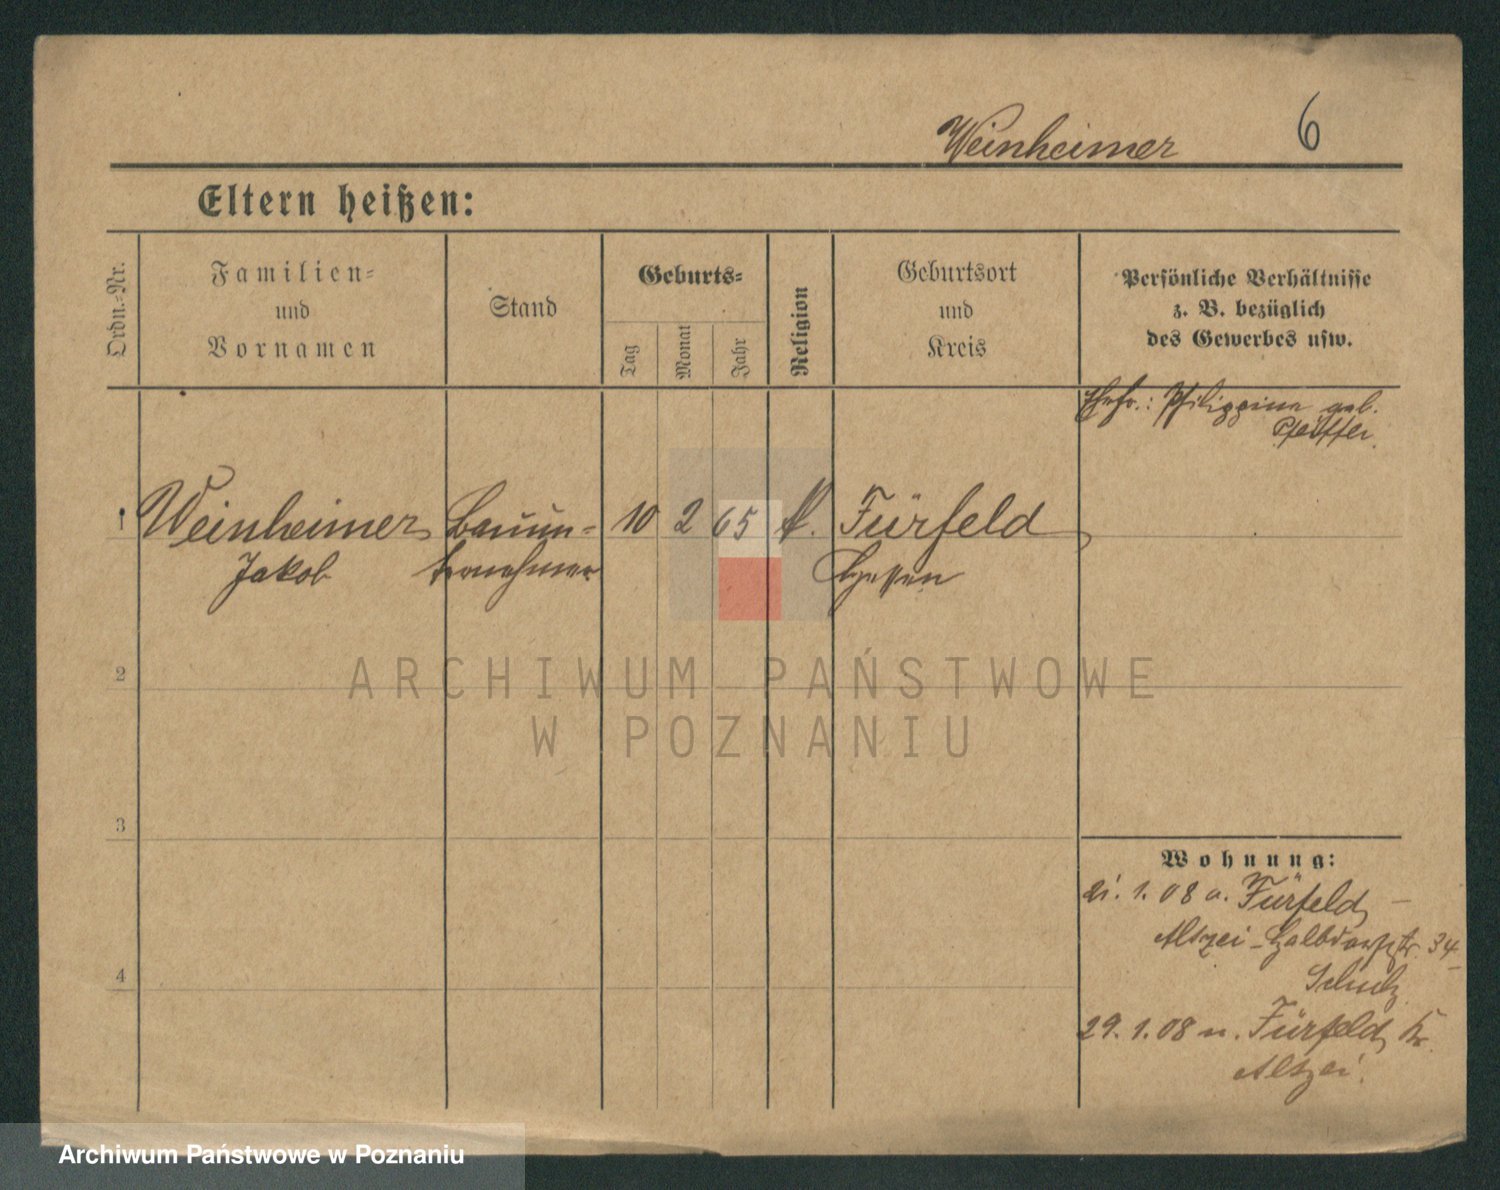 Weinheimer 6
Eltern heißen:
Ordn.-Nr.
Familien-
und
Vornamen
Stand
Geburts-
Tag
Monat
Jahr
Religion
Geburtsort
und
Kreis
Persönliche Verhältnisse
z. B. bezüglich
des Gewerbes usw.
Ehefr.: Philippine geb.
Pfeiffer.
1 Weinheimer Bauun- 10 2 65 k. Fürfeld
Jakob ternehmer Hessen
2
ARCHIWUM PAŃSTWOWE
W POZNANIU
3
Wohnung:
21. 1. 08 a. Fürfeld –
Alszei - Halbdorfstr. 34
Schulz
4
29. 1. 08 n. Fürfeld, Kr.
Alszei.
Archiwum Państwowe w Poznaniu